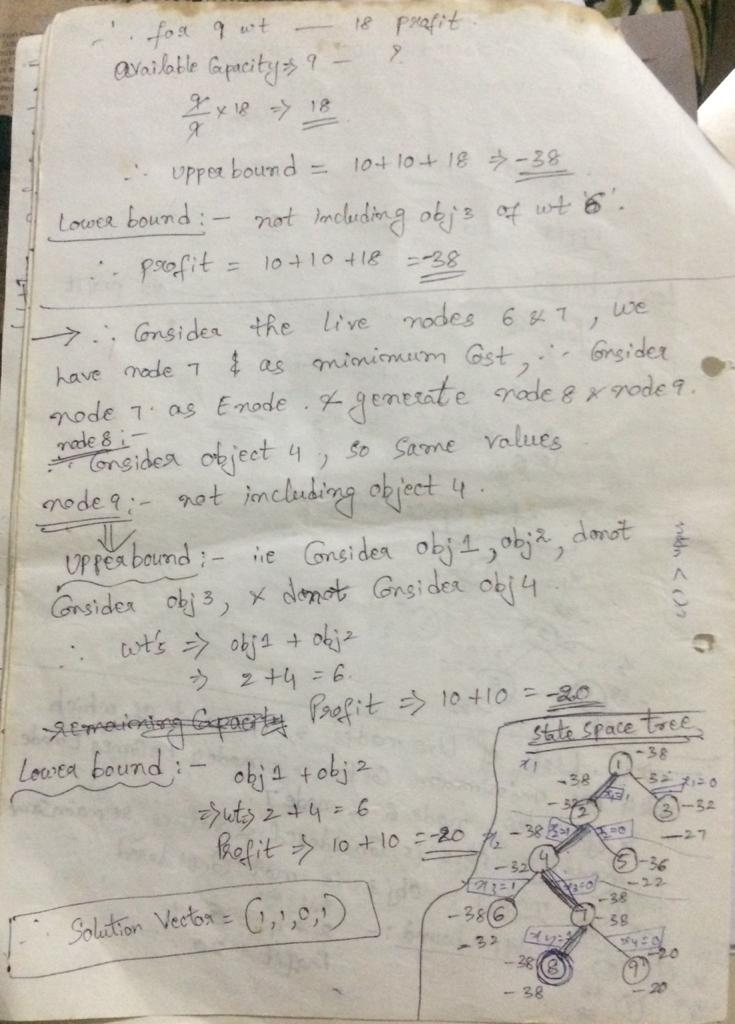 ∴ for 9 wt — 18 profit.
available Capacity ⇒ 9 — ?
9/9 × 18 ⇒ 18
∴ upper bound = 10 + 10 + 18 ⇒ -38
Lower bound :- not including obj 3 of wt '6'.
∴ profit = 10 + 10 + 18 = -38
→ ∴ Consider the live nodes 6 & 7, we
have node 7 & as minimum Cost, ∴ Consider
node 7 as Enode. & generate node 8 & node 9.
node 8 :-
∴ Consider object 4, so same values
node 9 :- not including object 4.
⇓
Upper bound :- ie Consider obj 1, obj 2, donot
Consider obj 3, & donot Consider obj 4
∴ wt's ⇒ obj 1 + obj 2
⇒ 2 + 4 = 6.
remaining Capacity Profit ⇒ 10 + 10 = -20
Lower bound :- obj 1 + obj 2
⇒ wts 2 + 4 = 6
Profit ⇒ 10 + 10 = -20
∴ Solution Vector = (1, 1, 0, 1)
State Space tree
x1 1 -38
-32
-38 x1=1 x1=0
-32 2 3 -32
-27
x2 -38 x2=1 x2=0
-32 4 5 -36
-22
x3=1 x3=0
-38 6 7 -38
-32 -38
x4=1 x4=0
-38 8 9 -20
-38 -20